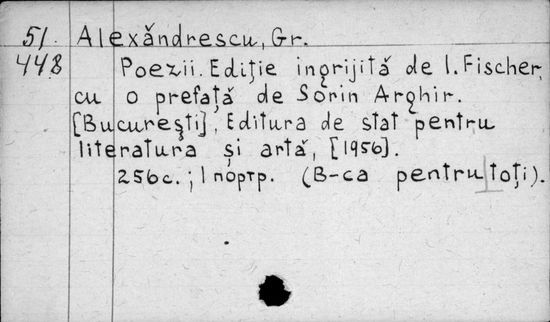 51. Alexăndrescu, Gr.
448 Poezii. Ediție ingrijită de I. Fischer,
cu o prefață de Sorin Arghir.
[București], Editura de stat pentru
literatura și artă, [1956].
256c.; 1 портр. (B-ca pentru toți).